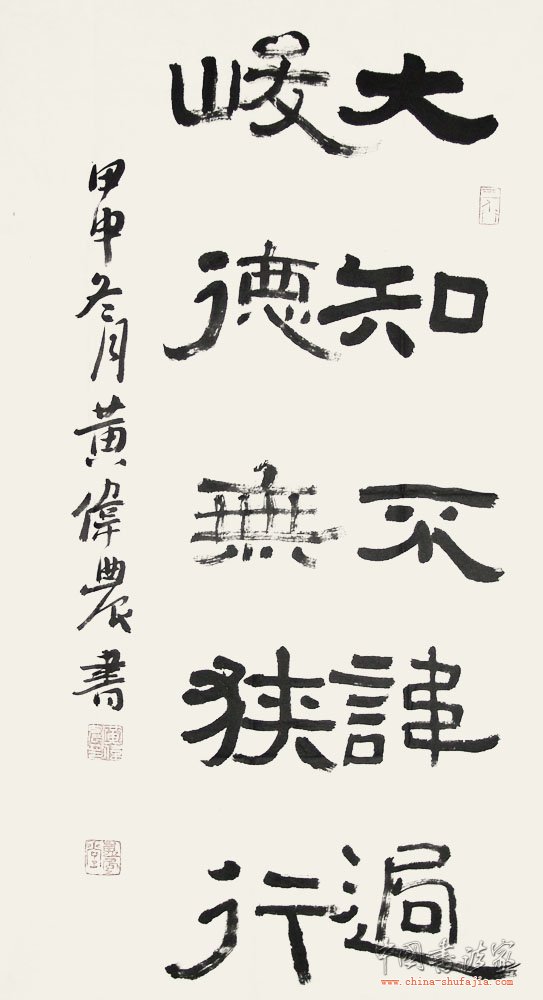 大知不諱過
峻德無狹行
甲申冬月黄偉農書
中国书法家
www.china-shufajia.com